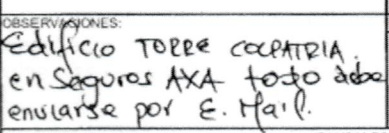 OBSERVACIONES:
Edificio TORRE COLPATRIA.
en Seguros AXA todo debe
enviarse por E. Mail.